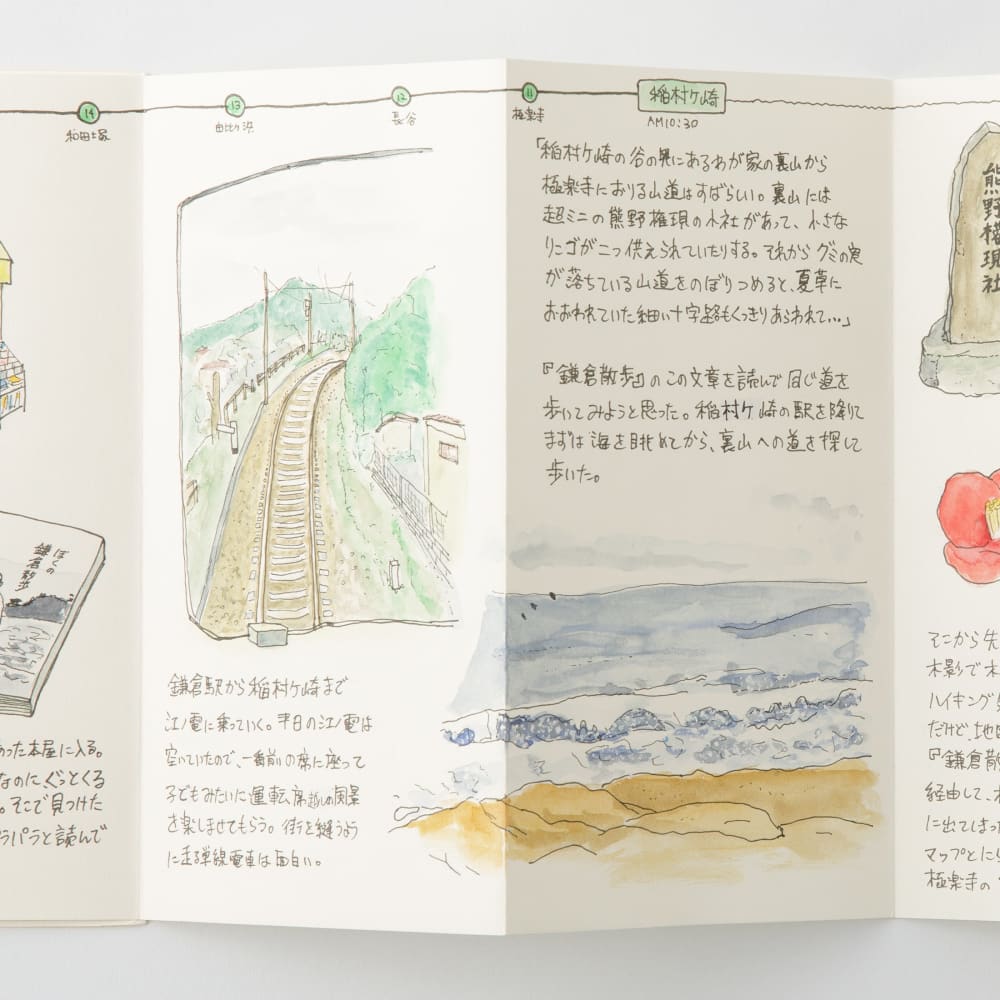 14
和田塚
13
由比ヶ浜
12
長谷
11
極楽寺
稲村ヶ崎
AM10:30
ぼくの
鎌倉散歩
った本屋に入る。
なのにぐっとくる
。そこで見つけた
ラパラと読んで
鎌倉駅から稲村ヶ崎まで
江ノ電に乗っていく。平日の江ノ電は
空いていたので、一番前の席に座って
子どもみたいに運転席越しの風景
を楽しませてもらう。街を縫うよう
に走る単線電車は面白い。
「稲村ヶ崎の谷の奥にあるわが家の裏山から
極楽寺におりる山道はすばらしい。裏山には
超ミニの熊野権現の小社があって、小さな
リンゴが二つ供えられていたりする。それからグミの実
が落ちている山道をのぼりつめると、夏草に
おおわれていた細い十字路もくっきりあらわれて…」
『鎌倉散歩』のこの文章を読んで同じ道を
歩いてみようと思った。稲村ヶ崎の駅を降りて
まずは海を眺めてから、裏山への道を探して
歩いた。
熊野権現社
そこから先
木影で木
ハイキング
だけど、地
『鎌倉散
経由して、
に出てしまっ
マップとに
極楽寺の